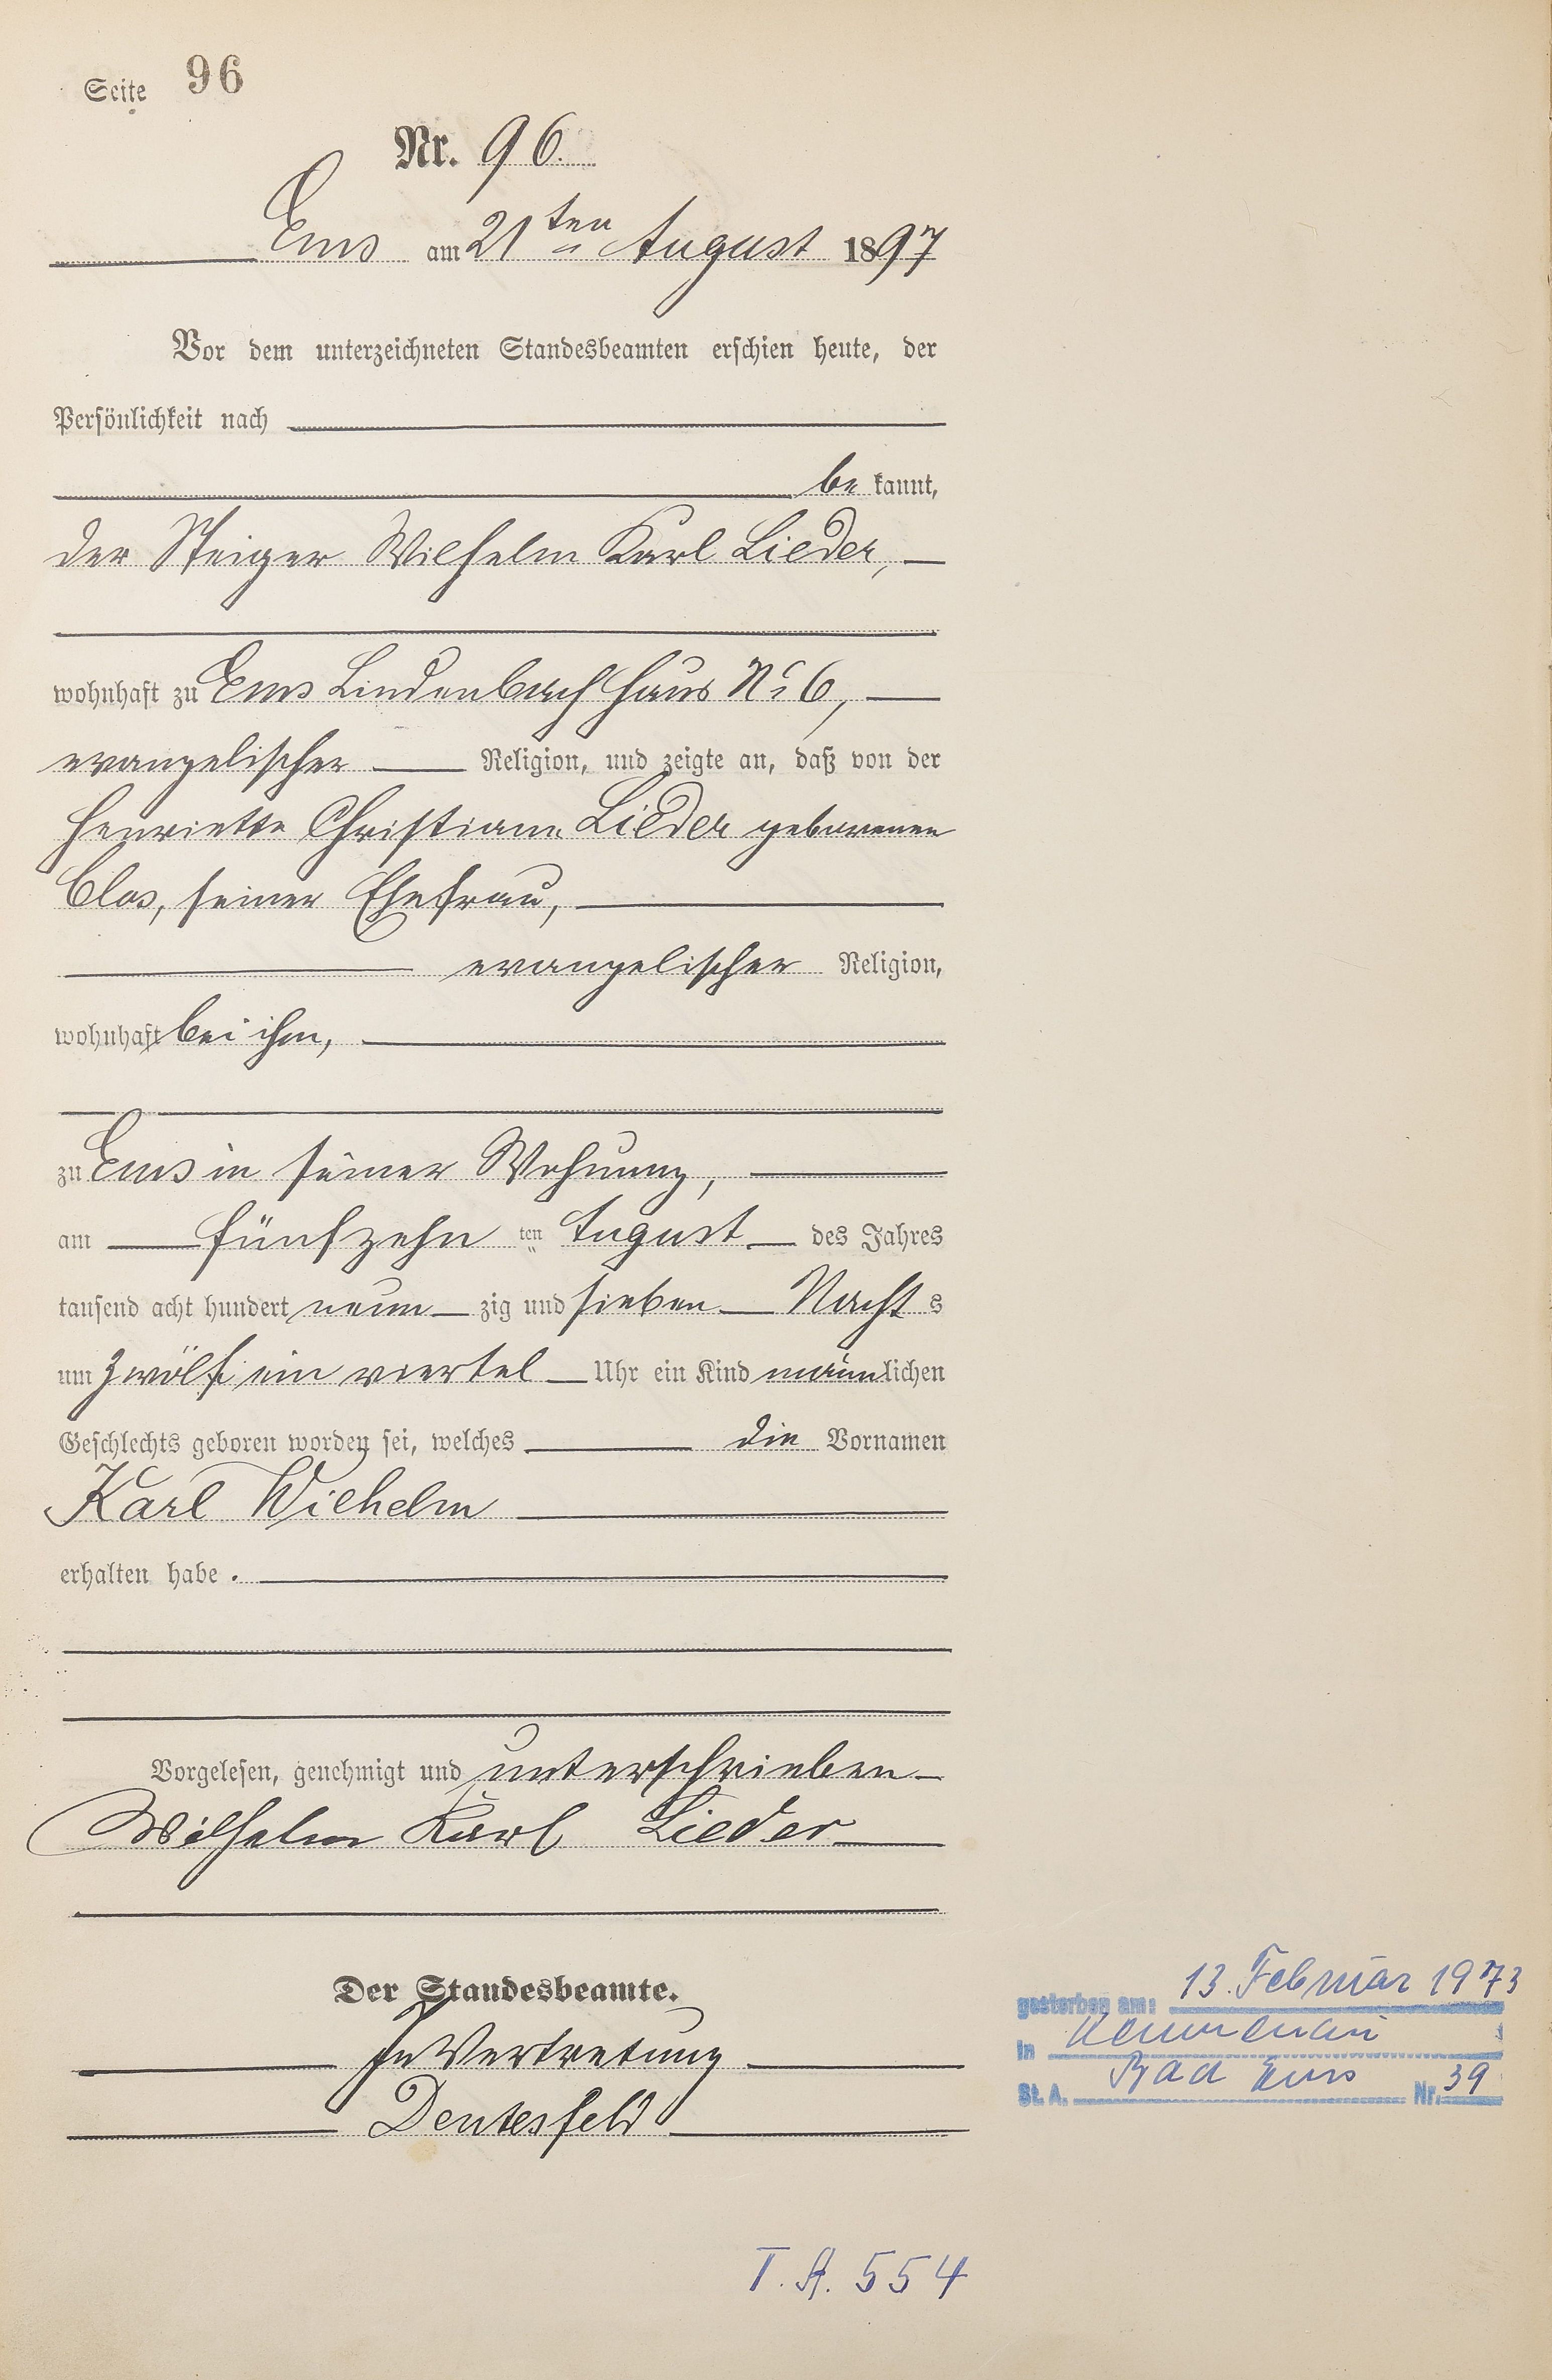 Seite 96
Nr. 96.
Ems am 21ten August 1897
Vor dem unterzeichneten Standesbeamten erschien heute, der
Persönlichkeit nach
be kannt,
der Steiger Wilhelm Karl Lieder,
wohnhaft zu Ems Lindenbach Haus No 6,
evangelischer Religion, und zeigte an, daß von der
Henriette Christiane Lieder geborenen
Clos, seiner Ehefrau,
evangelischer Religion,
wohnhaft bei ihm,
zu Ems in seiner Wohnung,
am fünfzehn ten August des Jahres
tausend acht hundert neun zig und sieben Nacht s
um zwölf ein viertel Uhr ein Kind männlichen
Geschlechts geboren worden sei, welches die Vornamen
Karl Wilhelm
erhalten habe.
Vorgelesen, genehmigt und unterschrieben
Wilhelm Karl Lieder
Der Standesbeamte.
In Vertretung
gestorben am: 13. Februar 1973
in
St. A. Bad Ems Nr. 39
T. A. 554